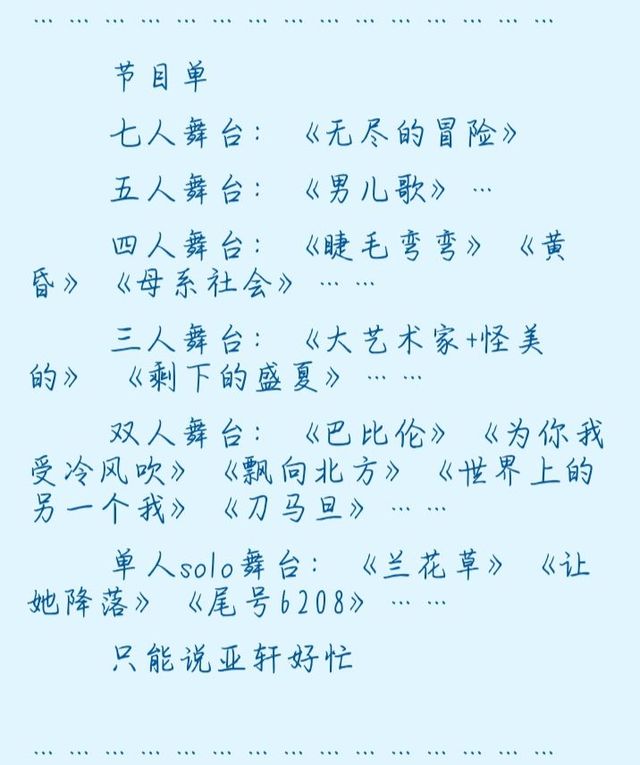 … … … … … … … … … … … … … … …
节目单
七人舞台：《无尽的冒险》
五人舞台：《男儿歌》…
四人舞台：《睫毛弯弯》《黄
昏》《母系社会》… …
三人舞台：《大艺术家+怪美
的》《剩下的盛夏》… …
双人舞台：《巴比伦》《为你我
受冷风吹》《飘向北方》《世界上的
另一个我》《刀马旦》… …
单人solo舞台：《兰花草》《让
她降落》《尾号6208》… …
只能说亚轩好忙
… … … … … … … … … … … … … … …